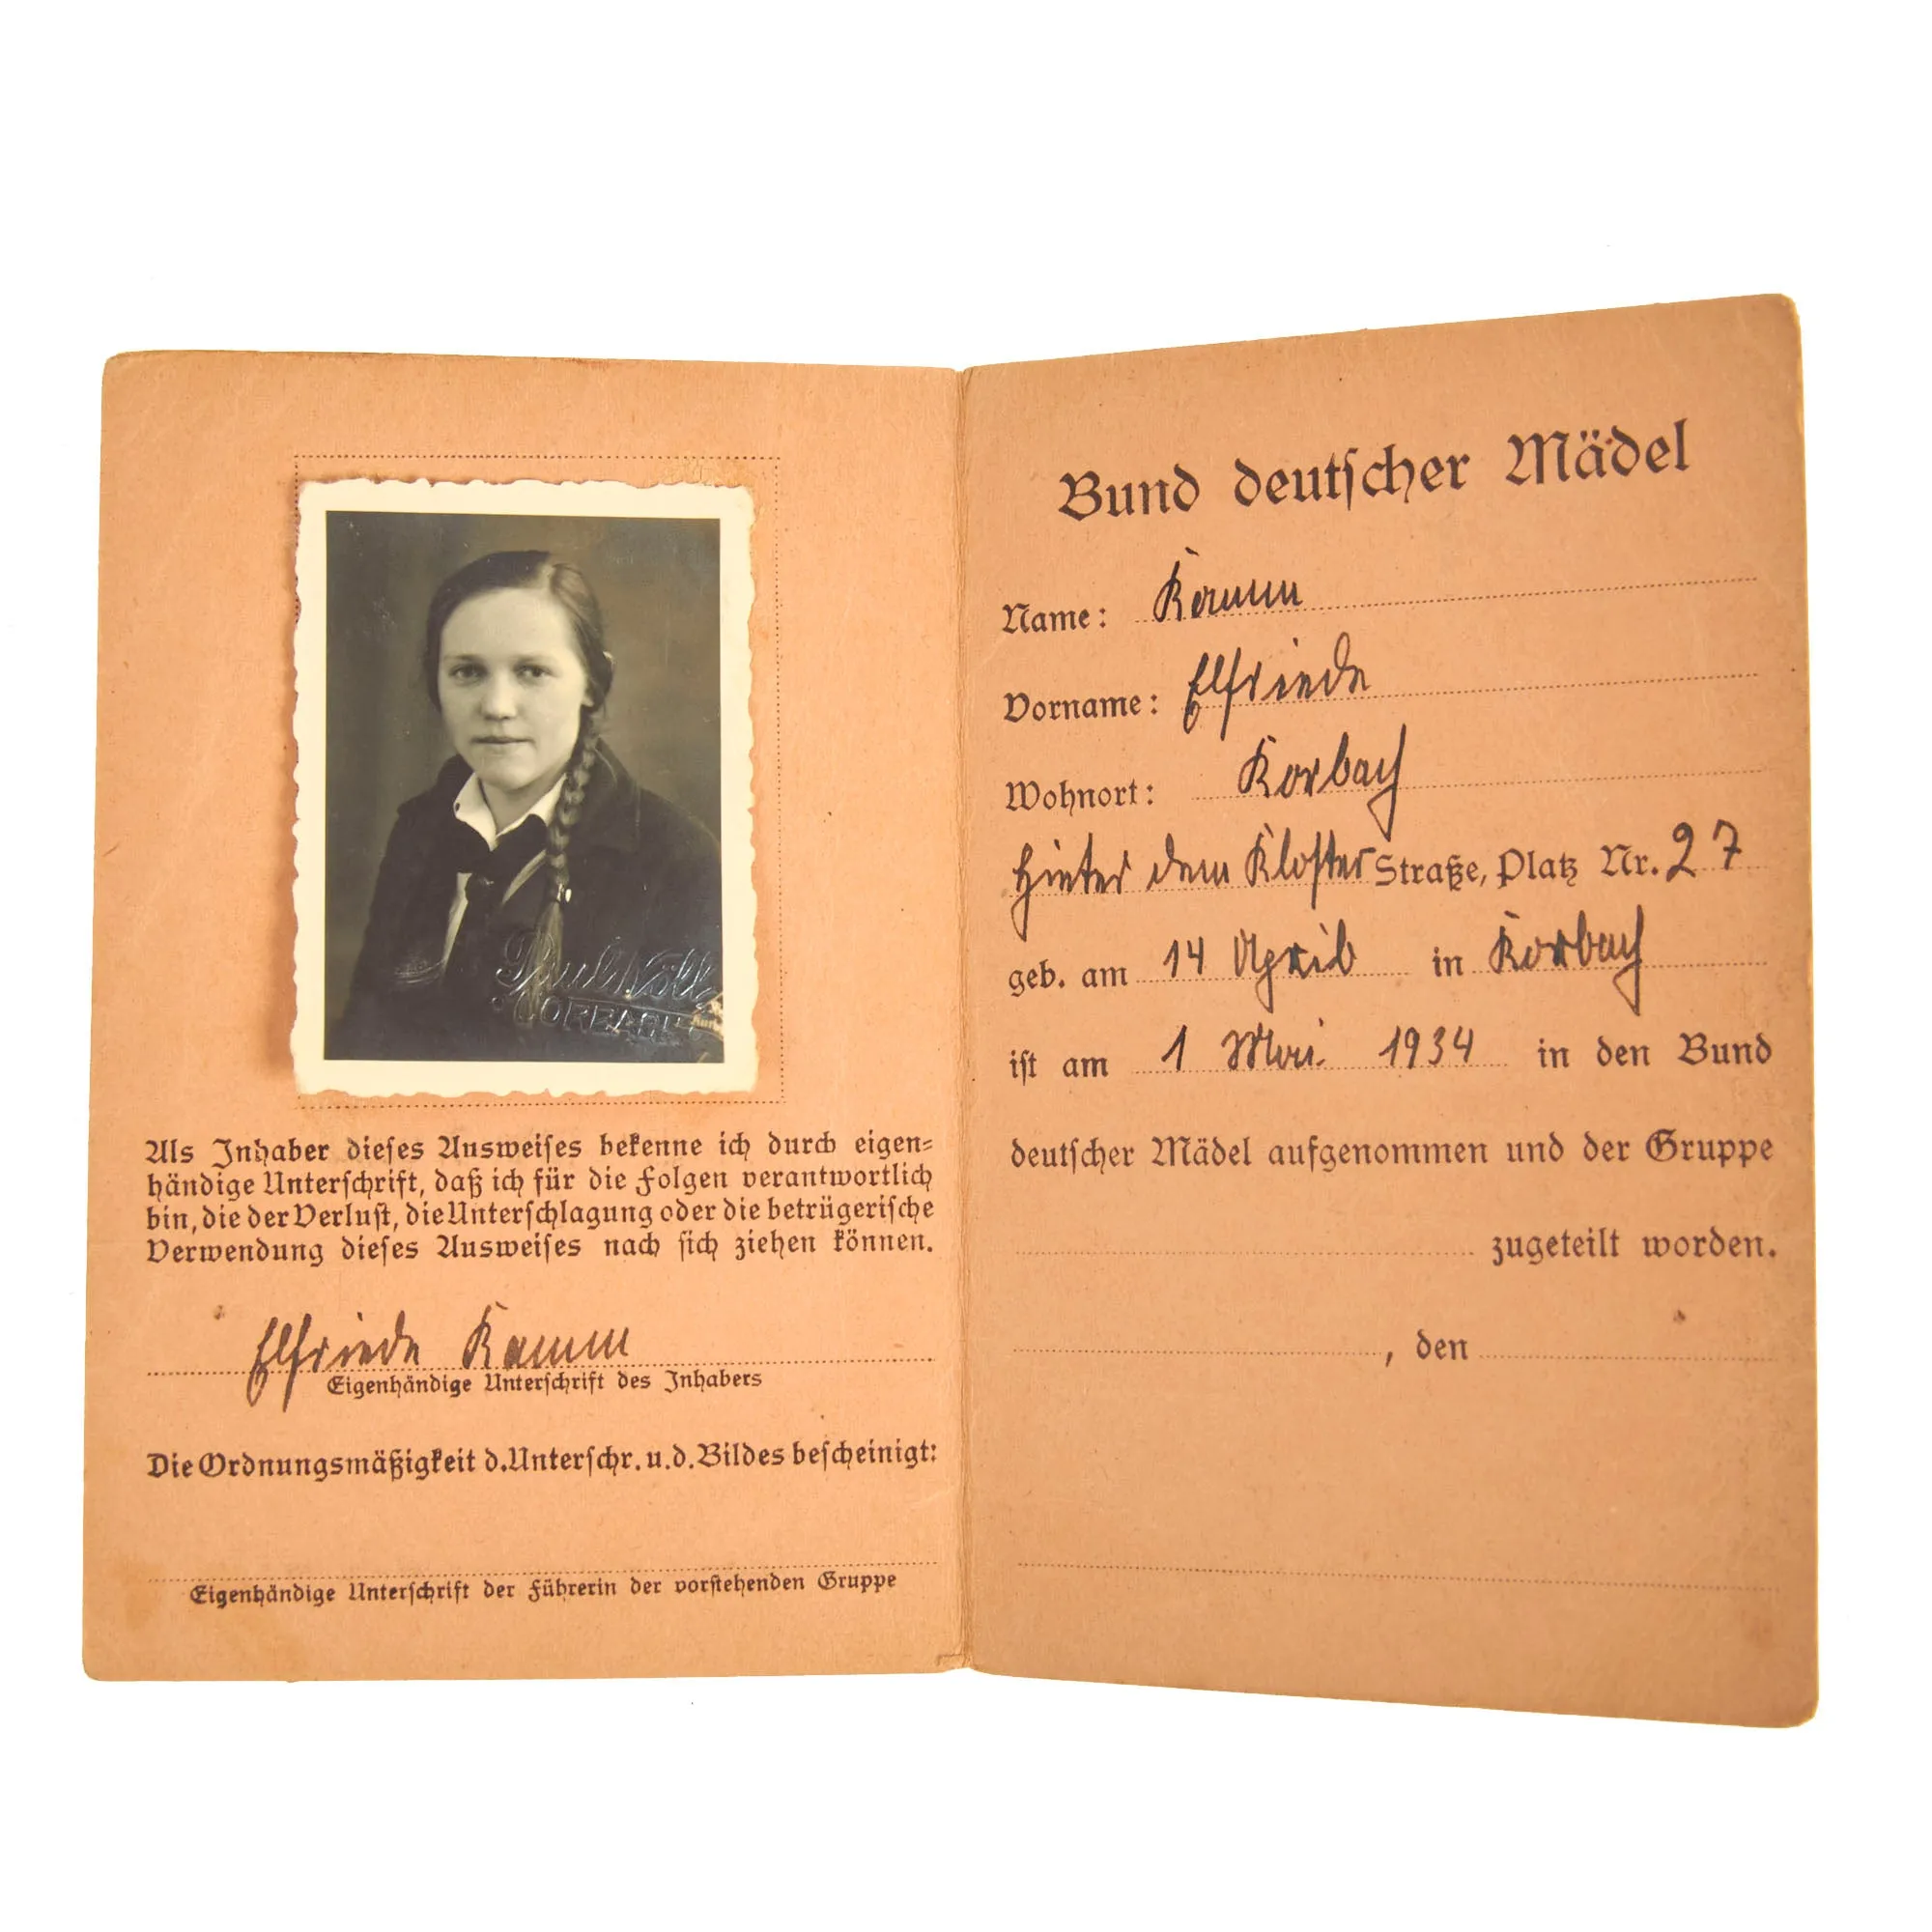 Paul Nölle
CORBACH
Als Inhaber dieses Ausweises bekenne ich durch eigen-
händige Unterschrift, daß ich für die Folgen verantwortlich
bin, die der Verlust, die Unterschlagung oder die betrügerische
Verwendung dieses Ausweises nach sich ziehen können.
Elfriede Kamm
Eigenhändige Unterschrift des Inhabers
Die Ordnungsmäßigkeit d. Unterschr. u. d. Bildes bescheinigt:
Eigenhändige Unterschrift der Führerin der vorstehenden Gruppe
Bund deutscher Mädel
Name: Kamm
Vorname: Elfriede
Wohnort: Korbach
Hinter dem Kloster Straße, Platz Nr. 27
geb. am 14 April in Korbach
ist am 1 Mai 1934 in den Bund
deutscher Mädel aufgenommen und der Gruppe
zugeteilt worden.
, den